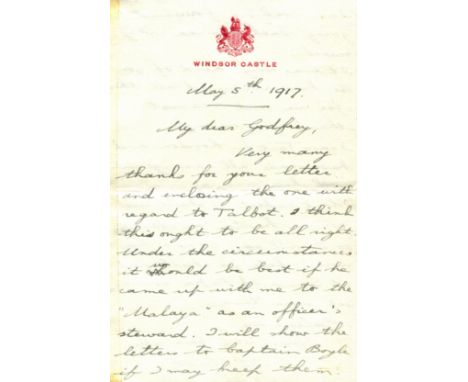 WINDSOR CASTLE
May 5th 1917.
My dear Godfrey,
Very many
thanks for your letter
and enclosing the one with
regard to Talbot. I think
this ought to be all right.
Under the circumstances
it would be best if he
came up with me to the
"Malaya" as an officer's
steward. I will show the
letters to Captain Boyle
if I may keep them.